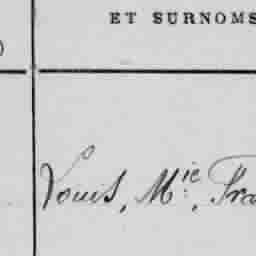 ET SURNOMS
)
Louis, M.ie, Fra